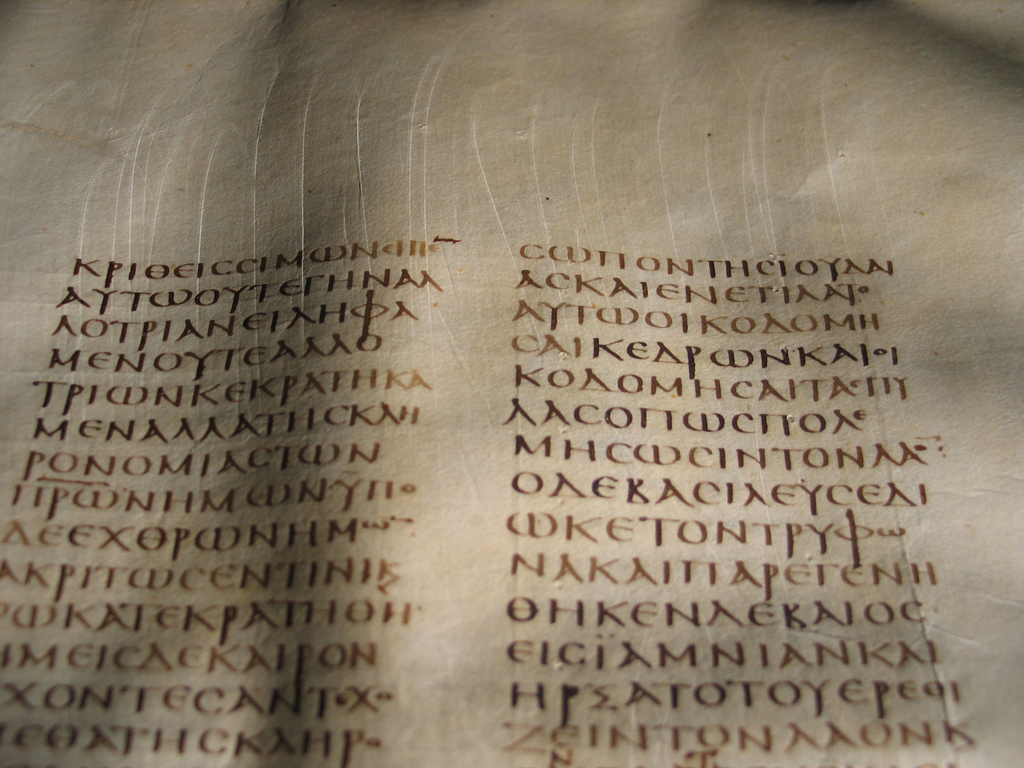 ΚΡΙΘΕΙϹϹΙΜΩΝΕΙΠΕ̅
ΑΥΤΩΟΥΤΕΓΗΝΑΛ
ΛΟΤΡΙΑΝΕΙΛΗΦΑ
ΜΕΝΟΥΤΕΑΛΛΟ
ΤΡΙΩΝΚΕΚΡΑΤΗΚΑ
ΜΕΝΑΛΛΑΤΗϹΚΛΗ
ΡΟΝΟΜΙΑϹΤΩΝ
Π̅Ρ̅Ω̅Ν̅ΗΜΩΝΫΠΟ
ΔΕΕΧΘΡΩΝΗΜΩ̅
ΑΚΡΙΤΩϹΕΝΤΙΝΙΚΕ
ΡΩΚΑΤΕΚΡΑΤΗΘΗ
ΗΜΕΙϹΔΕΚΑΙΡΟΝ
ΧΟΝΤΕϹΑΝΤΟΧΟ
ΜΕΘΑΤΗϹΚΛΗΡΟ
ϹΩΠΟΝΤΗϹΙΟΥΔΑΙ
ΑϹΚΑΙΕΝΕΤΙΛΑΤΟ
ΑΥΤΩΟΙΚΟΔΟΜΗ
ϹΑΙΚΕΔΡΩΝΚΑΙΟΙ
ΚΟΔΟΜΗϹΑΙΤΑϹΠΥ
ΛΑϹΟΠΩϹΠΟΛΕ
ΜΗϹΩϹΙΝΤΟΝΛΑΟ̅
ΟΔΕΒΑϹΙΛΕΥϹΕΔΙ
ΩΚΕΤΟΝΤΡΥΦΩ
ΝΑΚΑΙΠΑΡΕΓΕΝΗ
ΘΗΚΕΝΔΕΒΑΙΟϹ
ΕΙϹΪΑΜΝΙΑΝΚΑΙ
ΗΡΞΑΤΟΤΟΥΕΡΕΘΙ
ΖΕΙΝΤΟΝΛΑΟΝΚ